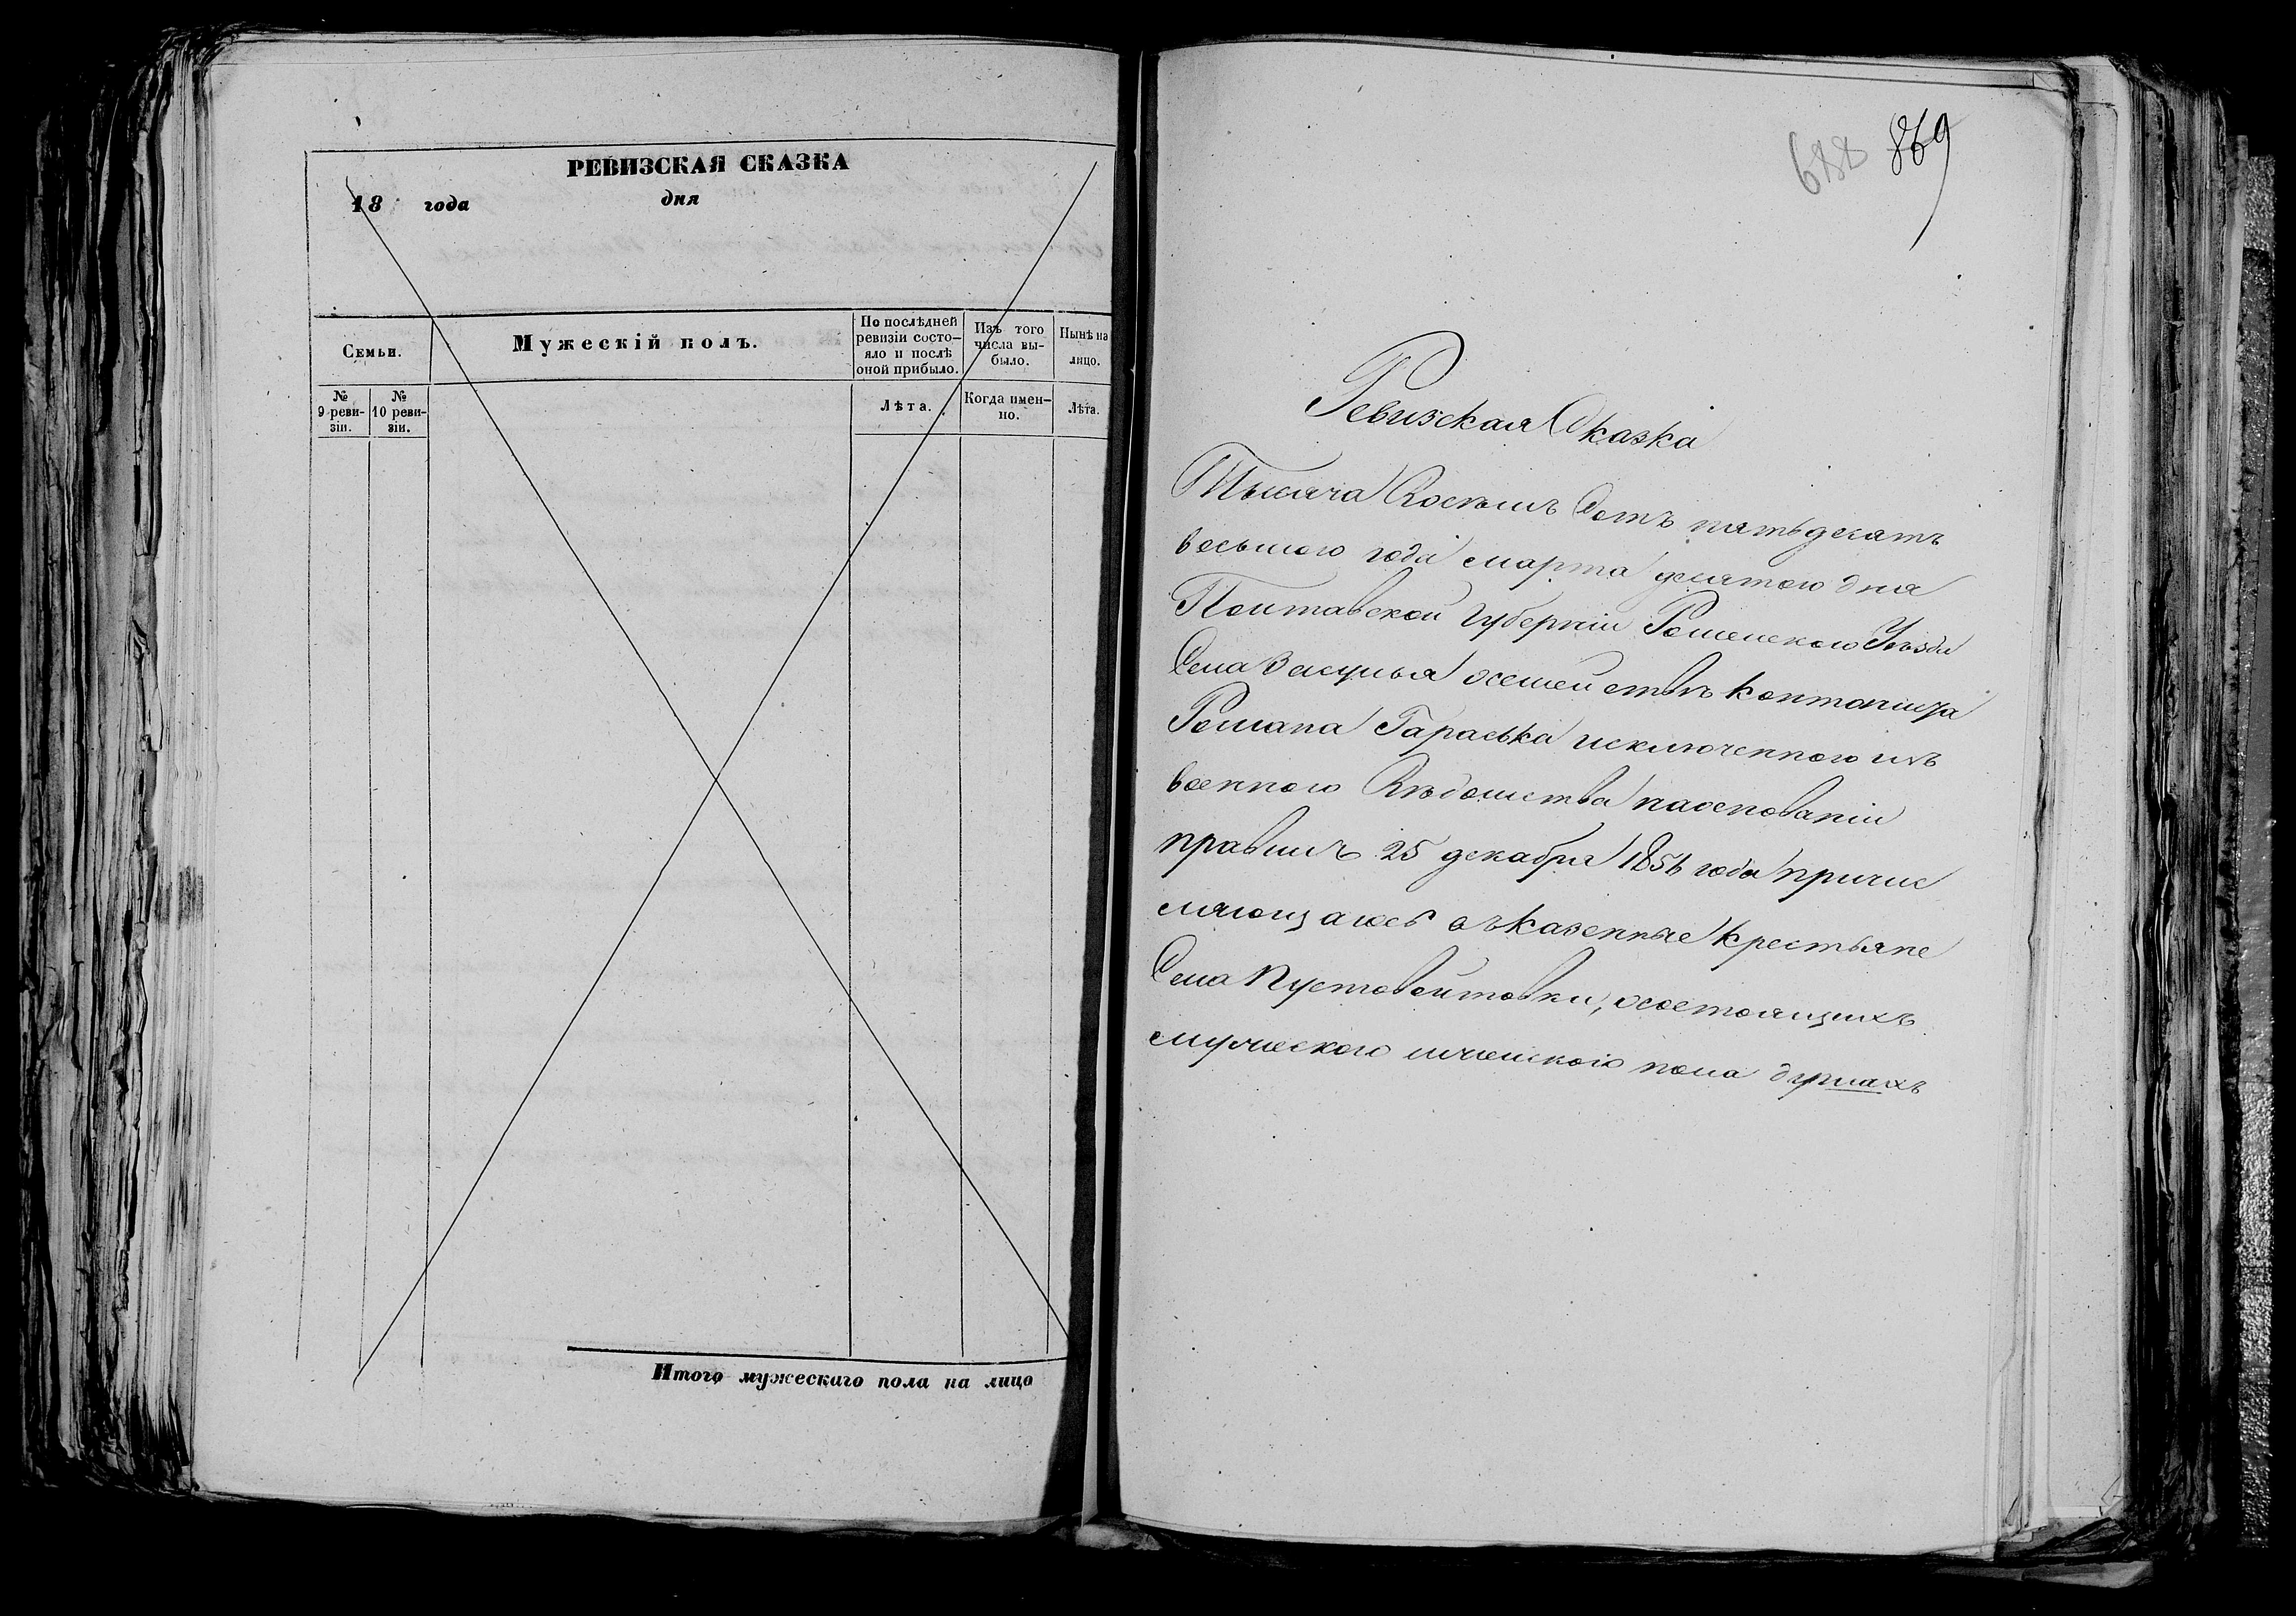 РЕВИЗСКАЯ СКАЗКА
18 года дня
Семьи.
Мужескій полъ.
По послѣдней ревизіи состо-
яло и послѣ
оной прибыло.
Изъ того
числа вы-
было.
Нынѣ на
лицо.
№
9 реви-
зіи.
№
10 реви-
зіи.
Лѣта.
Когда имен-
но.
Лѣта.
Итого мужескаго пола на лицо
688 869
Ревизская Сказка
Тысяча Восемь Сотъ пятьдесятъ
восьмого года марта десятого дня
Полтавской Губерніи Роменского Уѣзда
Села Засулья осемействѣ кантониста
Романа Тараська исключенного изъ
военного Вѣдомства наоснованіи
правилъ 25 декабря 1856 года причис
ляющаюсь въказенные крестьяне
Села Пустовойтовки, осостоящихъ
мужеского иженского пола душахъ